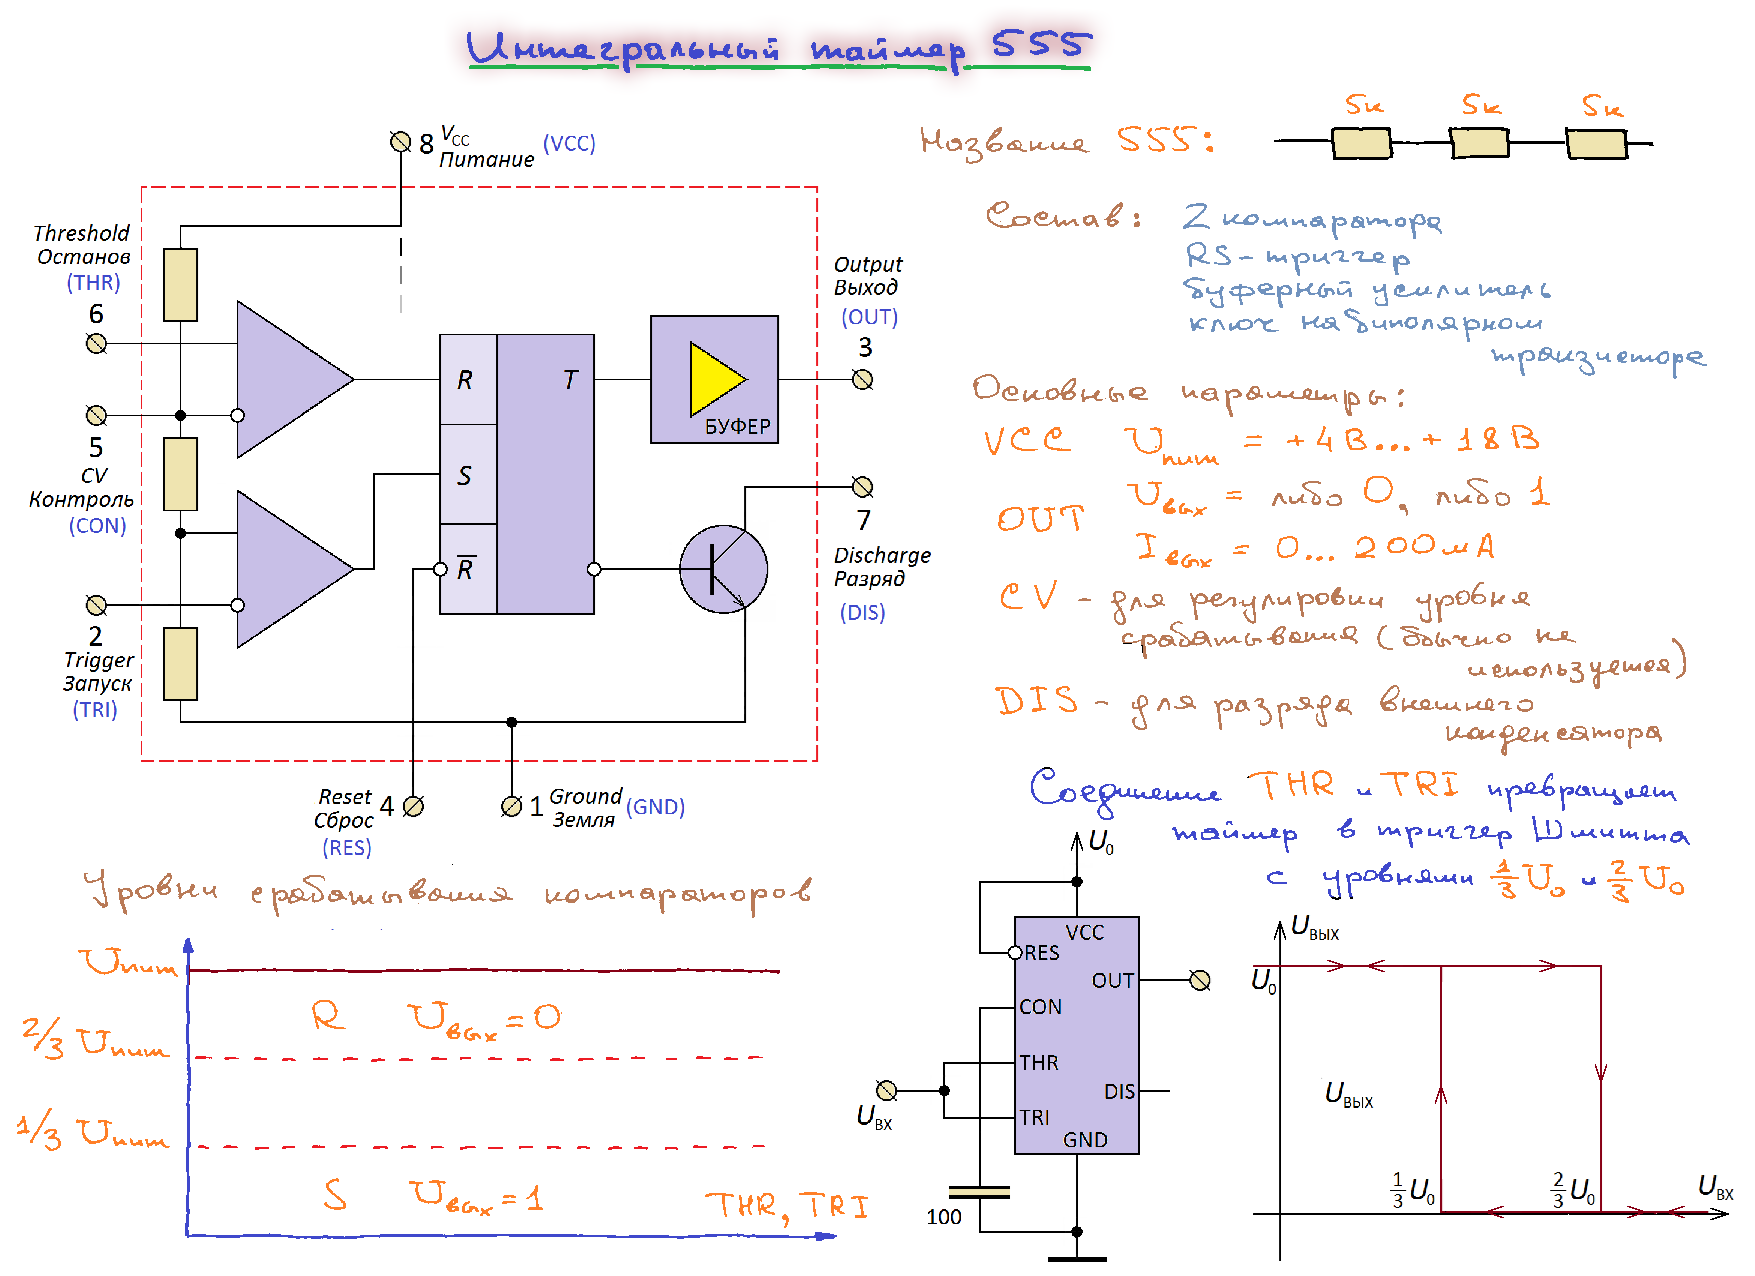 Интегральный таймер 555
8 VCC (VCC)
Питание
Threshold
Останов
(THR)
6
5
CV
Контроль
(CON)
2
Trigger
Запуск
(TRI)
R
S
R̅
T
БУФЕР
Output
Выход
(OUT)
3
7
Discharge
Разряд
(DIS)
Reset 4
Сброс
(RES)
1 Ground (GND)
Земля
Название 555:
5к 5к 5к
Состав: 2 компаратора
RS-триггер
буферный усилитель
ключ на биполярном
транзисторе
Основные параметры:
VCC Uпит = +4В...+18В
OUT Uвых = либо 0, либо 1
Iвых = 0...200мА
CV - для регулировки уровня
срабатывания (обычно не
используется)
DIS - для разряда внешнего
конденсатора
Соединение THR и TRI превращает
таймер в триггер Шмитта
с уровнями 1/3 U0 и 2/3 U0
Уровни срабатывания компараторов
Uпит
R Uвых = 0
2/3 Uпит
1/3 Uпит
S Uвых = 1
THR, TRI
U0
VCC
RES
OUT
CON
THR
DIS
TRI
GND
UВХ
100
UВЫХ
U0
UВЫХ
1/3 U0
2/3 U0
UВХ